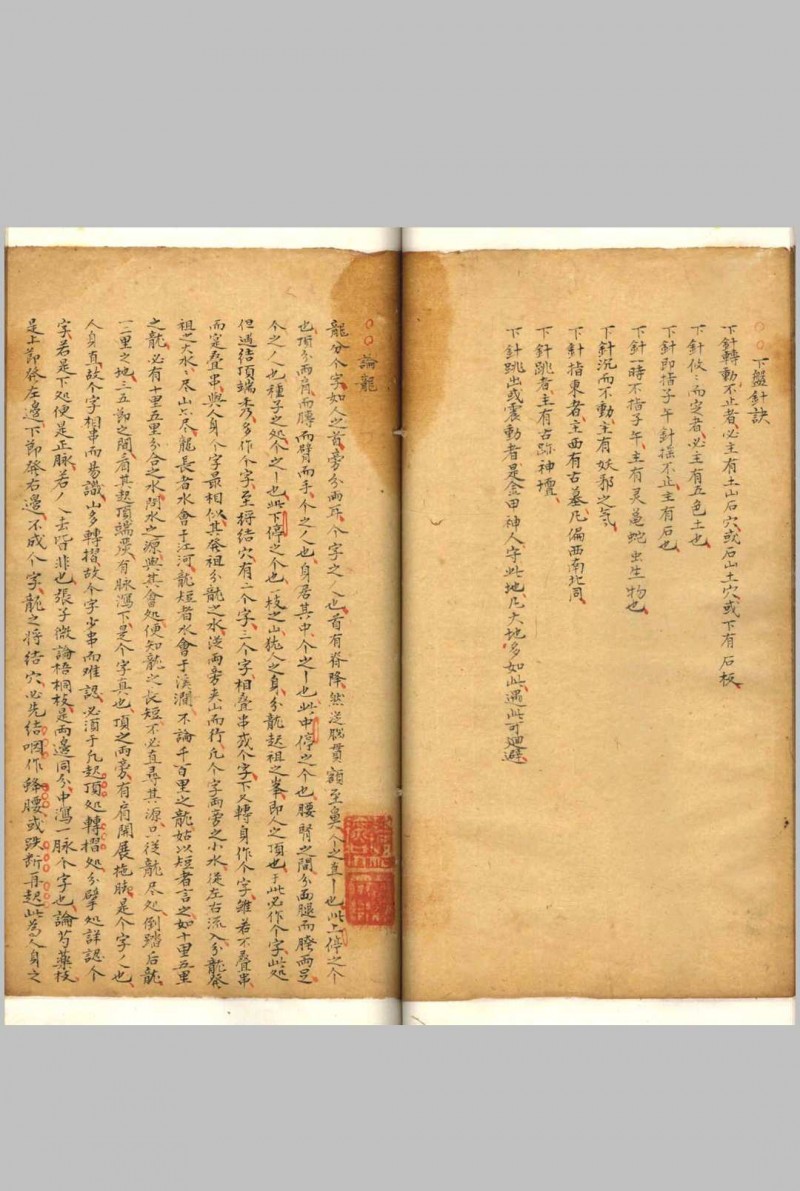 下盤針訣
下針轉動不止者必主有土山石穴或石山土穴或下有石板
下針倏〻而定者必主有五色土也
下針即指子午針搖不止主有石也
下針一時不指子午主有灵龜蛇虫生物也
下針沉而不動主有妖邪之氣
下針指東者主西有古墓凡偏西南北同
下針跳者主有古跡神壇
下針跳出或震動者是金田神人守此地凡大地多如此遇此可迴避
論龍
龍分个字如人之首旁分兩耳个字之八也首有脊降然後腦貫額至鼻人之直丨也此上停之个
也頂分兩肩而膊而臂而手个之八也身居其中个之丨也此中停之个也腰腎之間分兩腿而膀而足
个之八也種子之処个之丨也此下停之个也一枝之山犹人之身分龍起祖之峯即人之頂也于此必作个字此処
但遇結頂端秀多作个字至將結穴有二个字三个字相叠串或个字下又轉身作个字雖若不叠串
而定叠串與人身个字最相似其發祖分龍之水從兩旁夾山而行凡个字兩旁之小水從左右流入分龍發
祖之大水〻尽山亦尽龍長者水會于江河龍短者水會于溪澗不論千百里之龍姑以短者言之如十里五里
之龍必有十里五里分合之水問水之源與其會処便知龍之長短不必直尋其源只從龍尽処倒踏后龍
一二里之地三五節之間看其起頂端嚴有脉瀉下是个字真也頂之兩旁有肩開展拖脚是个字八也
人身直故个字相串而易識山多轉摺故个字少串而难認必須于凡起頂処轉摺処分擘処詳認个
字若是下処便是正脉若八去皆非也張子微論梧桐枝是兩邊同分中瀉一脉个字也論芍藥枝
是上節發左邊下節發右邊不成个字龍之將結穴必先結咽作蜂腰或跌断再起此為人身之